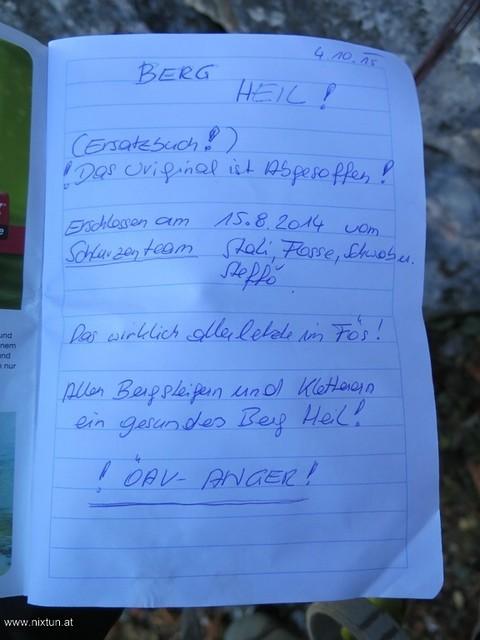 4.10.15
BERG
HEIL!
(Ersatzbuch!)
! Das Original ist Abgesoffen!
Erschlossen am 15.8.2014 vom
Schurzenteam Stoli, Flosse, Schwob u.
Steffö
Das wirklich allerletzte im Fös!
Allen Bergsteigern und Kletterern
ein gesundes Berg Heil!
! ÖAV- ANGER!
und
nem
und
n nur
www.nixtun.at